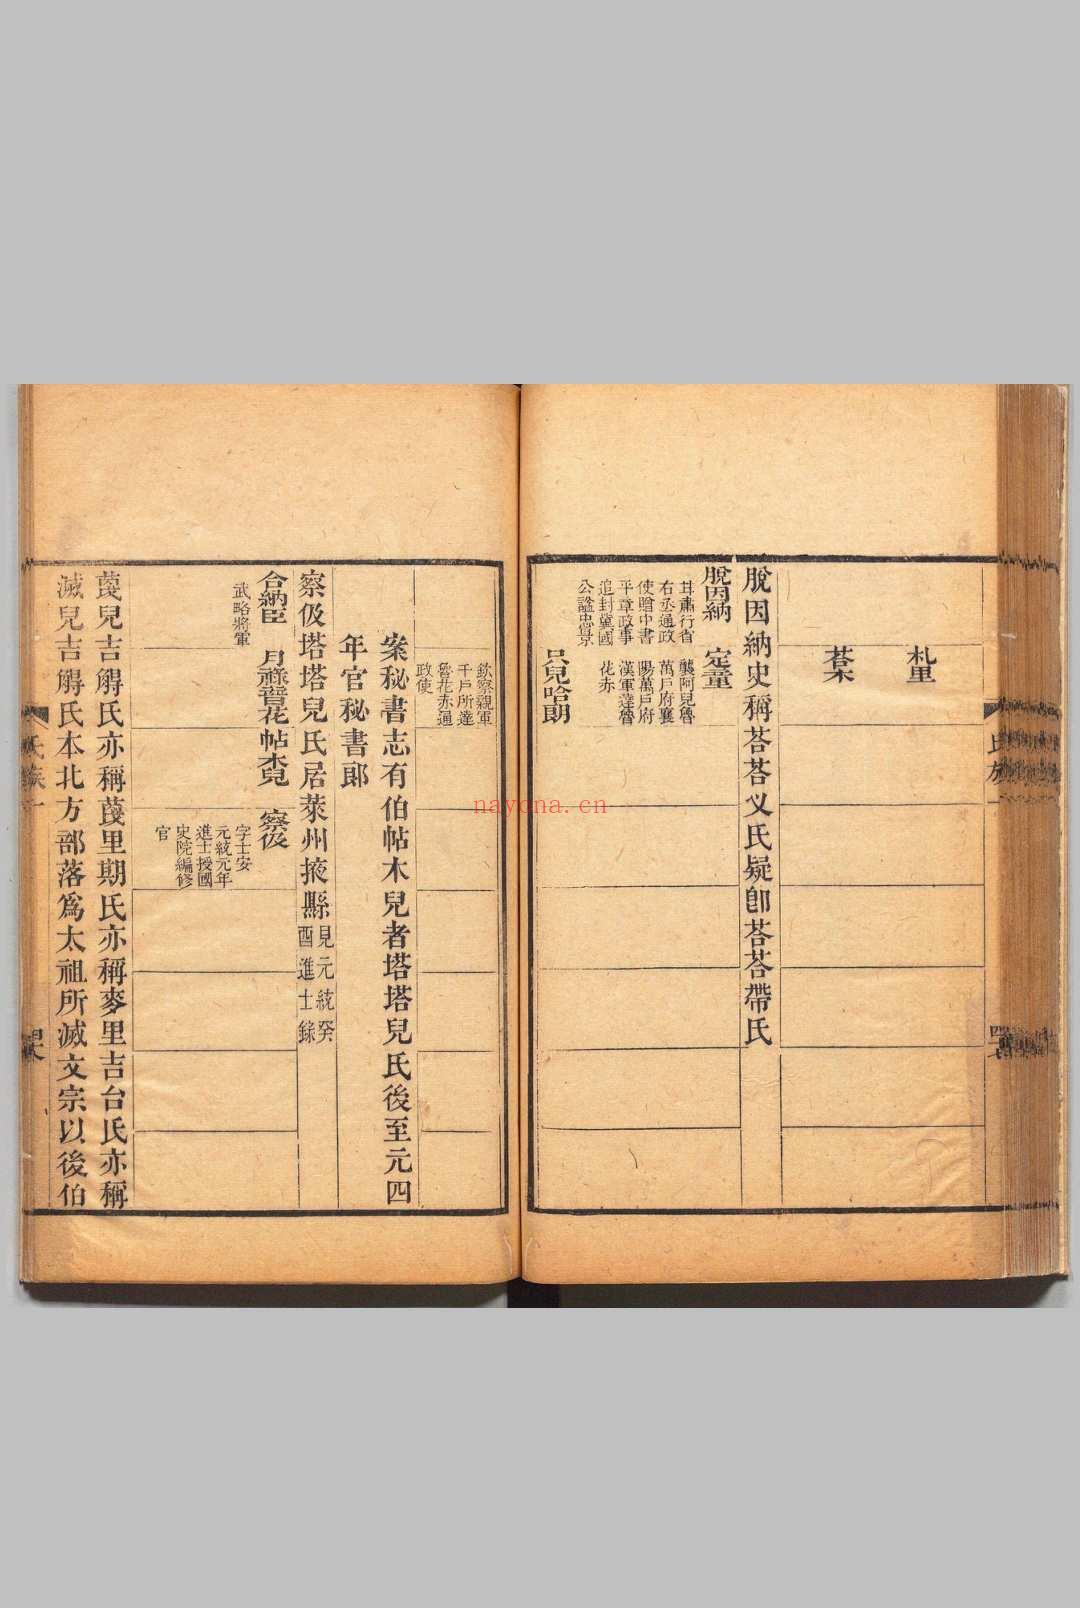 札里
荅木
脫因納史稱荅荅叉氏疑卽荅荅帶氏
脫因納
甘肅行省
右丞通政
使贈中書
平章政事
追封冀國
公諡忠景
定童
襲阿兒魯
萬戶府襄
陽萬戶府
漢軍達魯
花赤
只兒哈朗
欽察親軍
千戶所達
魯花赤通
政使
案秘書志有伯帖木兒者塔塔兒氏後至元四
年官秘書郎
察伋塔塔兒氏居萊州掖縣
見元統癸
酉進士錄
合納臣
武略將軍
月祿普花
帖木兒
察伋
字士安
元統元年
進士授國
史院編修
官
蔑兒吉䚟氏亦稱蔑里期氏亦稱麥里吉台氏亦稱
滅兒吉䚟氏本北方部落爲太祖所滅文宗以後伯
氏族
nayona.cn